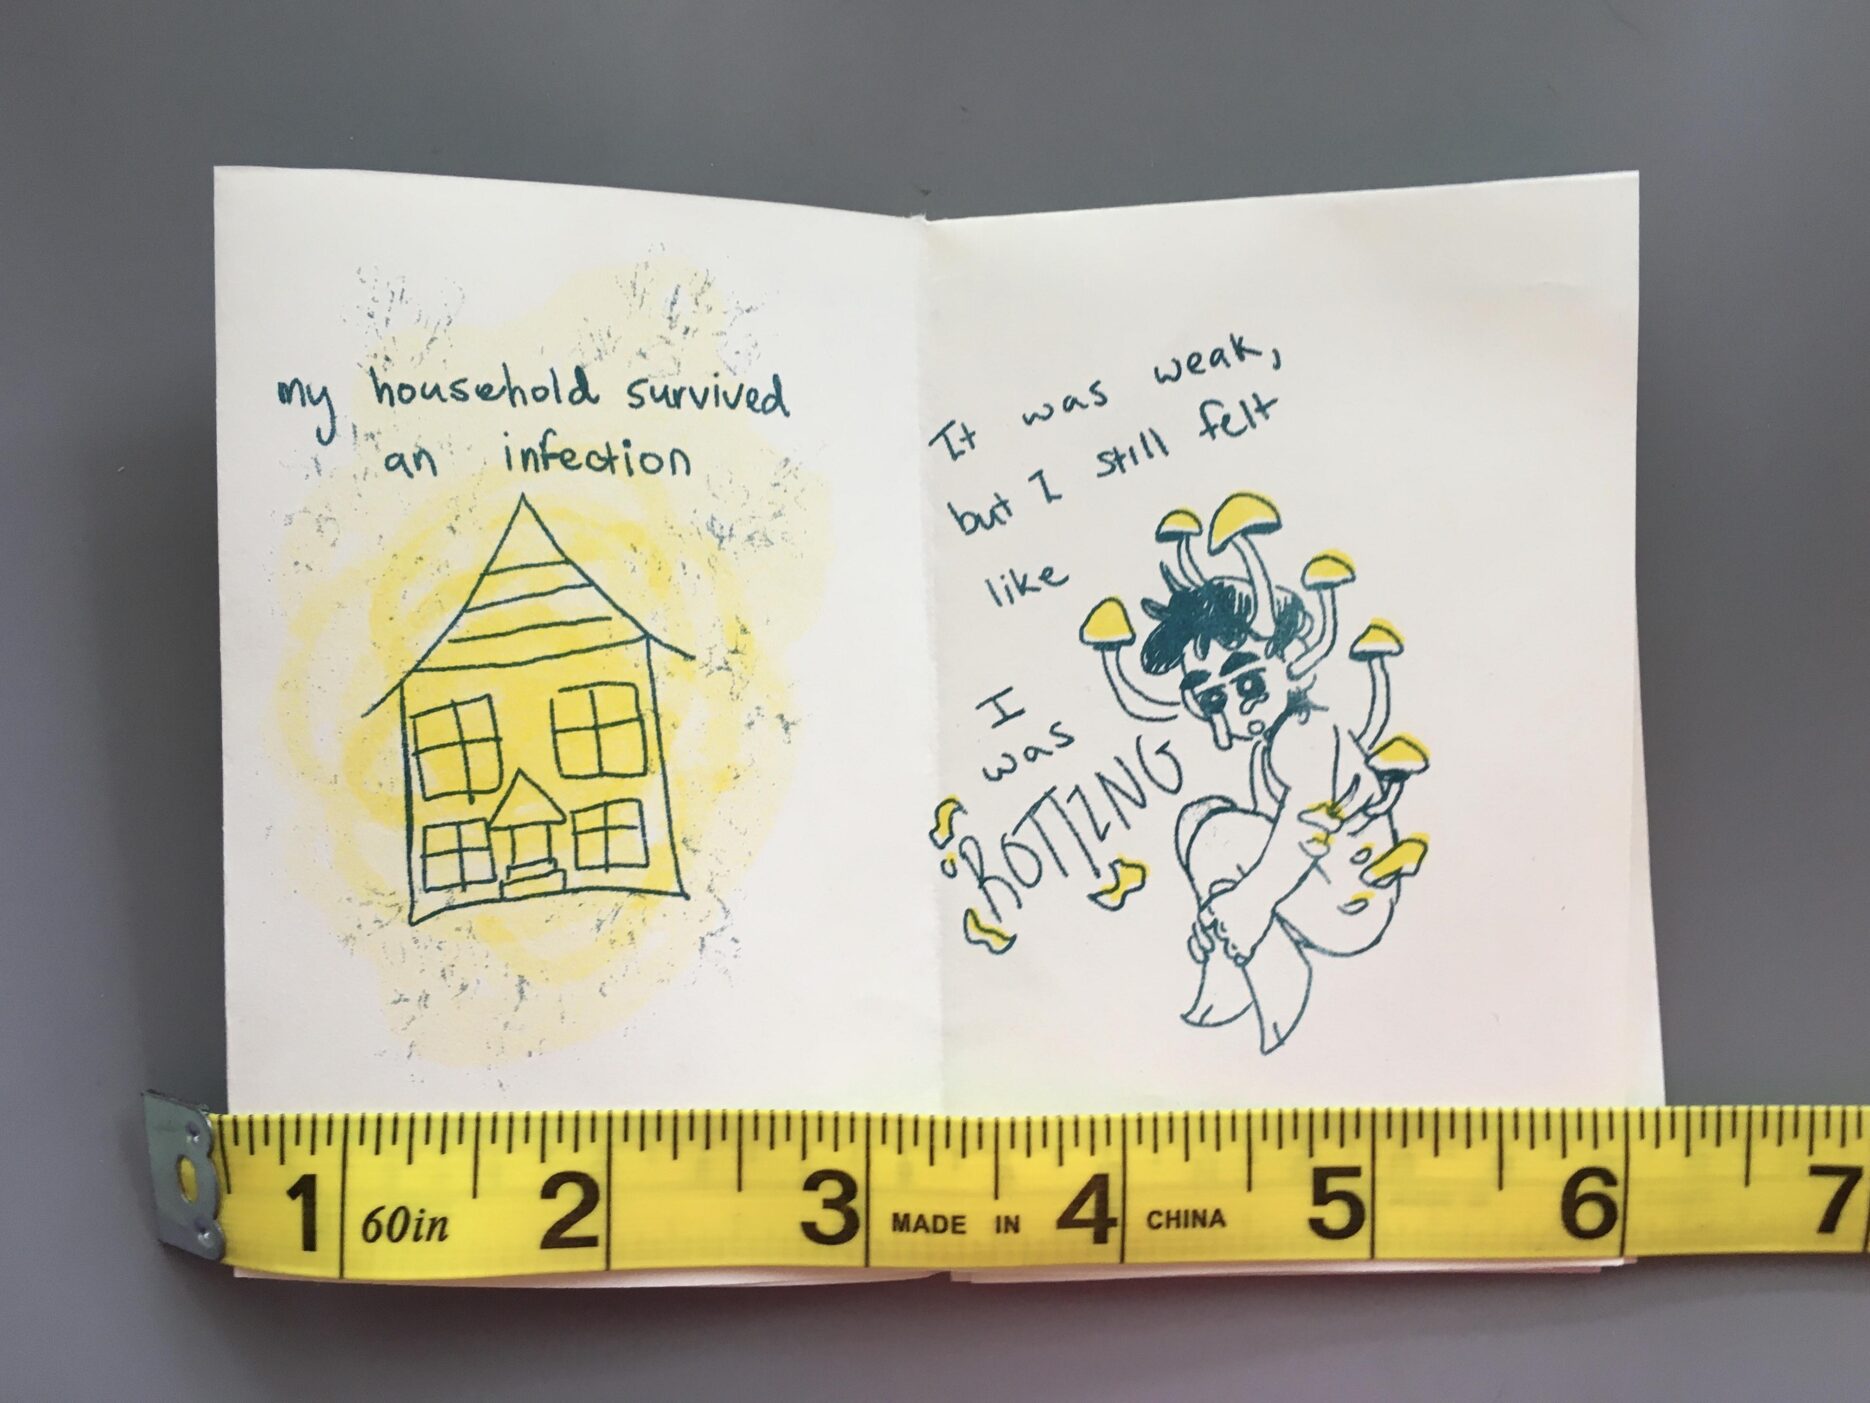 my household survived
an infection
It was weak,
but I still felt
like
I
was
ROTTING
1 60in 2 3 MADE IN 4 CHINA 5 6 7